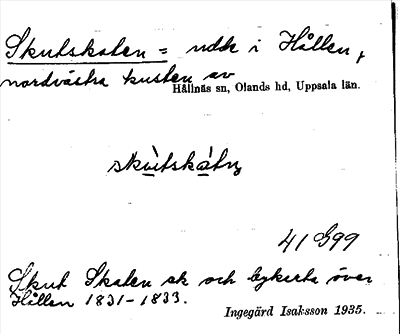 Skutskaten = udde i Hållen,
nordvästra kusten av
Hållnäs sn, Olands hd, Uppsala län.
41 G99
Skut Skaten sk och bykerta över
Hållen 1831-1833.
Ingegärd Isaksson 1935.